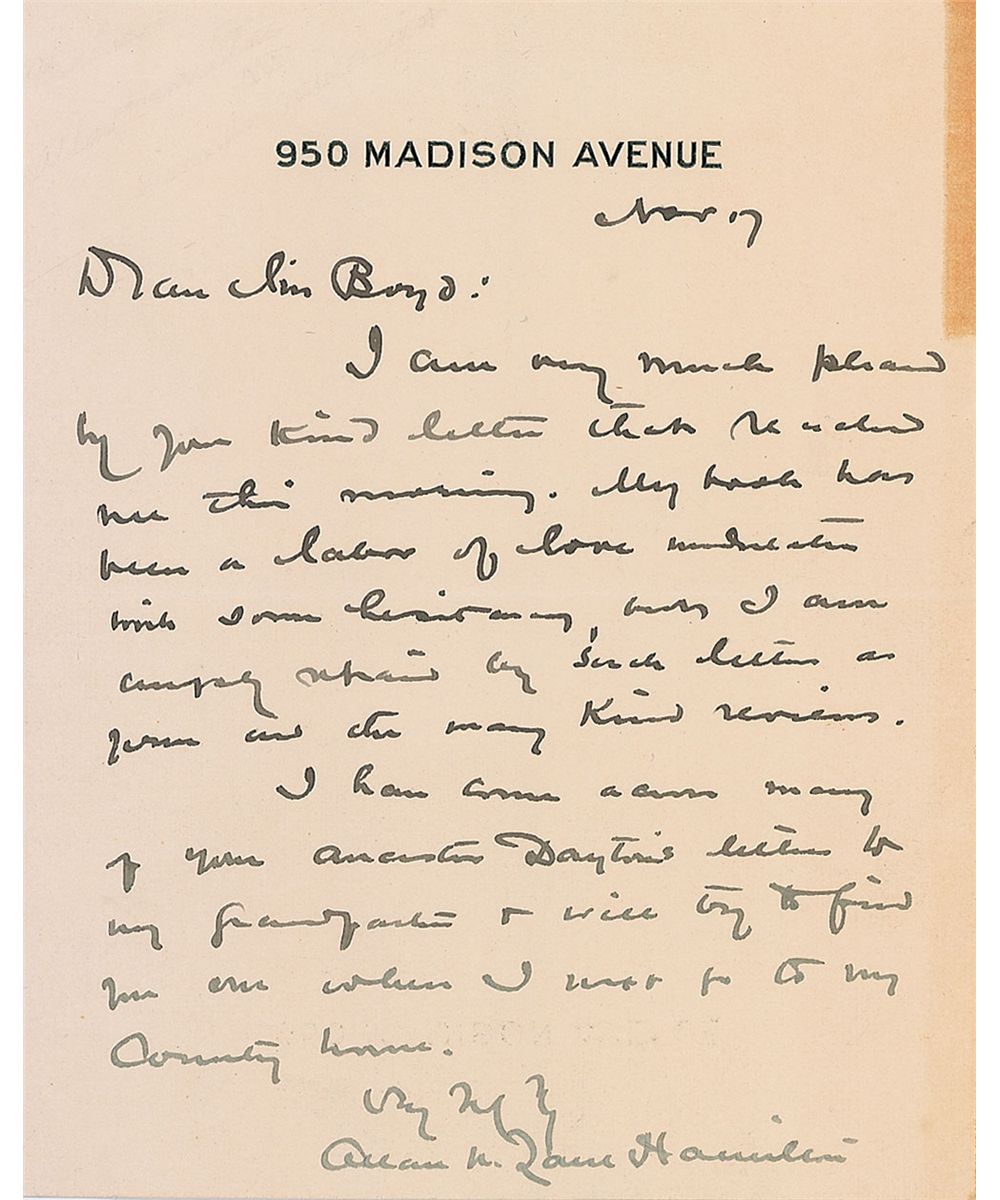 950 MADISON AVENUE
Nov 17
Dear Miss Boyd:
I am very much pleased
by your kind letter that reached
me this morning. My book has
been a labor of love undertaken
with some hesitancy, but I am
amply repaid by such letters as
yours and the many kind reviews.
I have come across many
of your ancestor Dayton's letters to
my grandfather & will try to find
you one when I next go to my
Country home.
Very Tly Yr
Allan McLane Hamilton